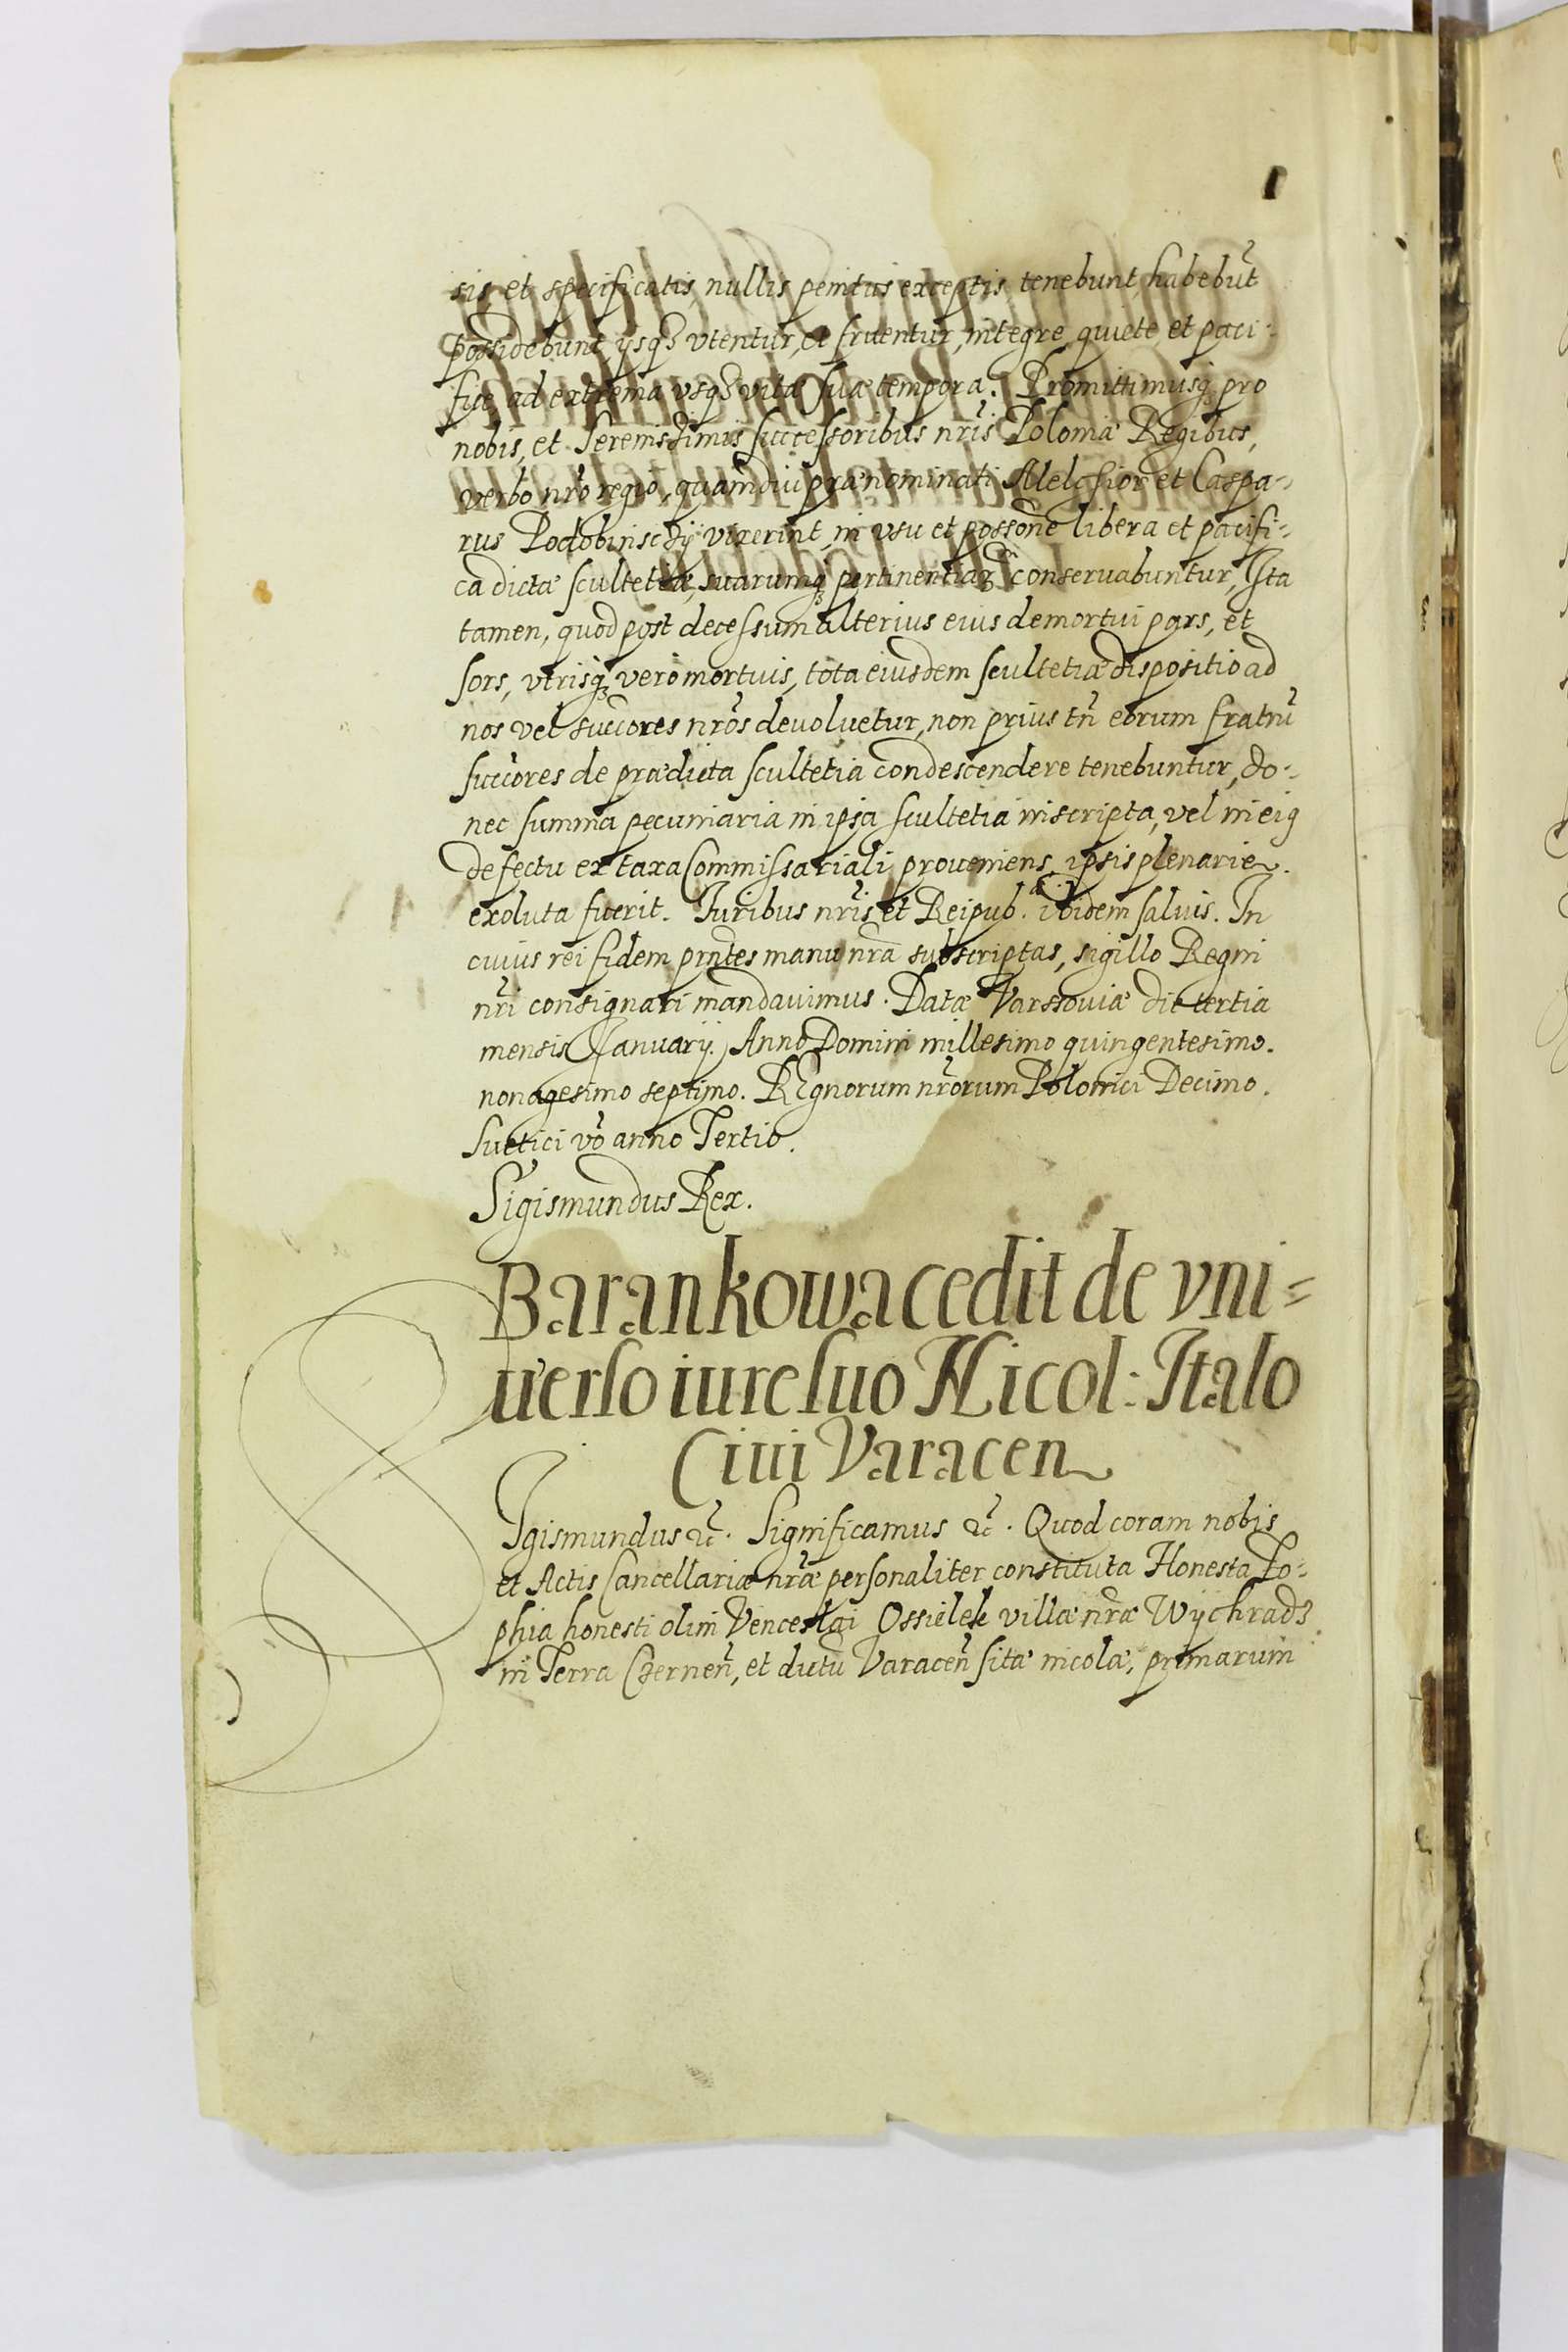 sis, et specificatis, nullis penitus exceptis tenebunt, habebūt
possidebunt, ijsq₃ vtentur, et fruentur, integre, quiete, et paci-
fice ad extrema vsq₃ vitæ suæ tempora. Promittimusq₃ pro
nobis, et Serenissimis successoribus nr̃is Poloniæ Regibus,
verbo nr̃o regio, quamdiu prænominati Melchior et Caspa-
rus Podobinschÿ vixerint, in vsu et possõne libera et pacifi-
ca dictæ scultetiæ, suarumq₃ pertinentiaꝝ conseruabuntur, Ita
tamen, quod post decessum alterius eius demortui pars, et
sors, vtrisq₃ vero mortuis, tota eiusdem scultetiæ dispositio ad
nos vel succ̃ores nr̃os deuoluetur, non prius tñ eorum fratrũ
succ̃ores de prædicta scultetia condescendere tenebuntur, do-
nec summa pecuniaria in ipsa scultetia inscripta, vel in eiꝰ
defectu ex taxa Commissariali proueniens, ipsis plenarie
exoluta fuerit. Iuribus nr̃is et Reipub. cæ. ibidem saluis. In
cuius rei fidem pr̃ntes manu nr̃a subscriptas, sigillo Regni
nr̃i consignari mandauimus. Datæ Varssouiæ die tertia
mensis Januarij. Anno Domini millesimo quingentesimo.
nonagesimo septimo. REgnorum nr̃orum Polonici Decimo.
Suetici võ anno Tertio.
Sigismundus Rex.
Barankowa cedit de vni=
uerso iure suo Nicol: Italo
Ciui Varacen
SIgismundus ꝛc̃. Significamus ꝛc̃. Quod coram nobis
et Actis Cancellariæ nr̃æ personaliter constituta Honesta Zo-
phia honesti olim Venceslai Ossielek villæ nr̃æ Wÿchradz
in Terra Czerneñ, et ductu Varaceñ sitæ incolæ, primarum